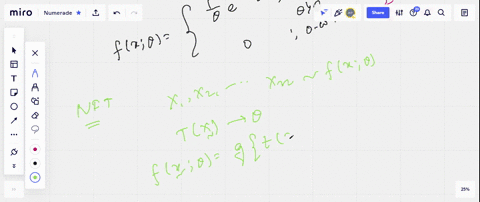 miro Numerade Share
f(x;θ) = { 1/θ e
0 ; 0.w.
NFT x₁, x₂, ... xₙ ~ f(x;θ)
T(x) → θ
f(x;θ) = g{t(
25%